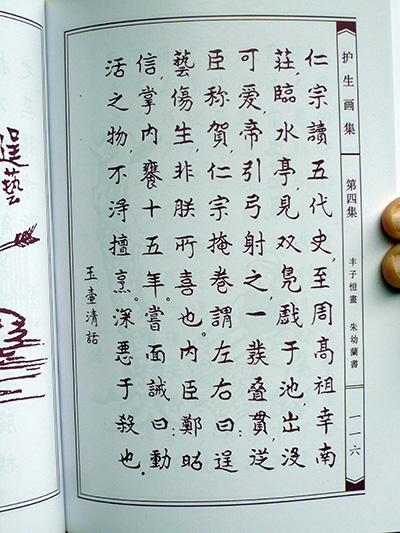 护生画集
第四集
丰子愷畫 朱幼蘭書
一一六
仁宗讀五代史,至周高祖幸南
莊,臨水亭,見双鳧戲于池,出没
可愛,帝引弓射之,一發叠貫,從
臣称賀,仁宗掩卷謂左右曰:逞
藝傷生,非朕所喜也。内臣鄭昭
信,掌内饔十五年。嘗面誡曰:動
活之物,不淂擅烹。深悪于殺也。
玉壺清話
逞藝